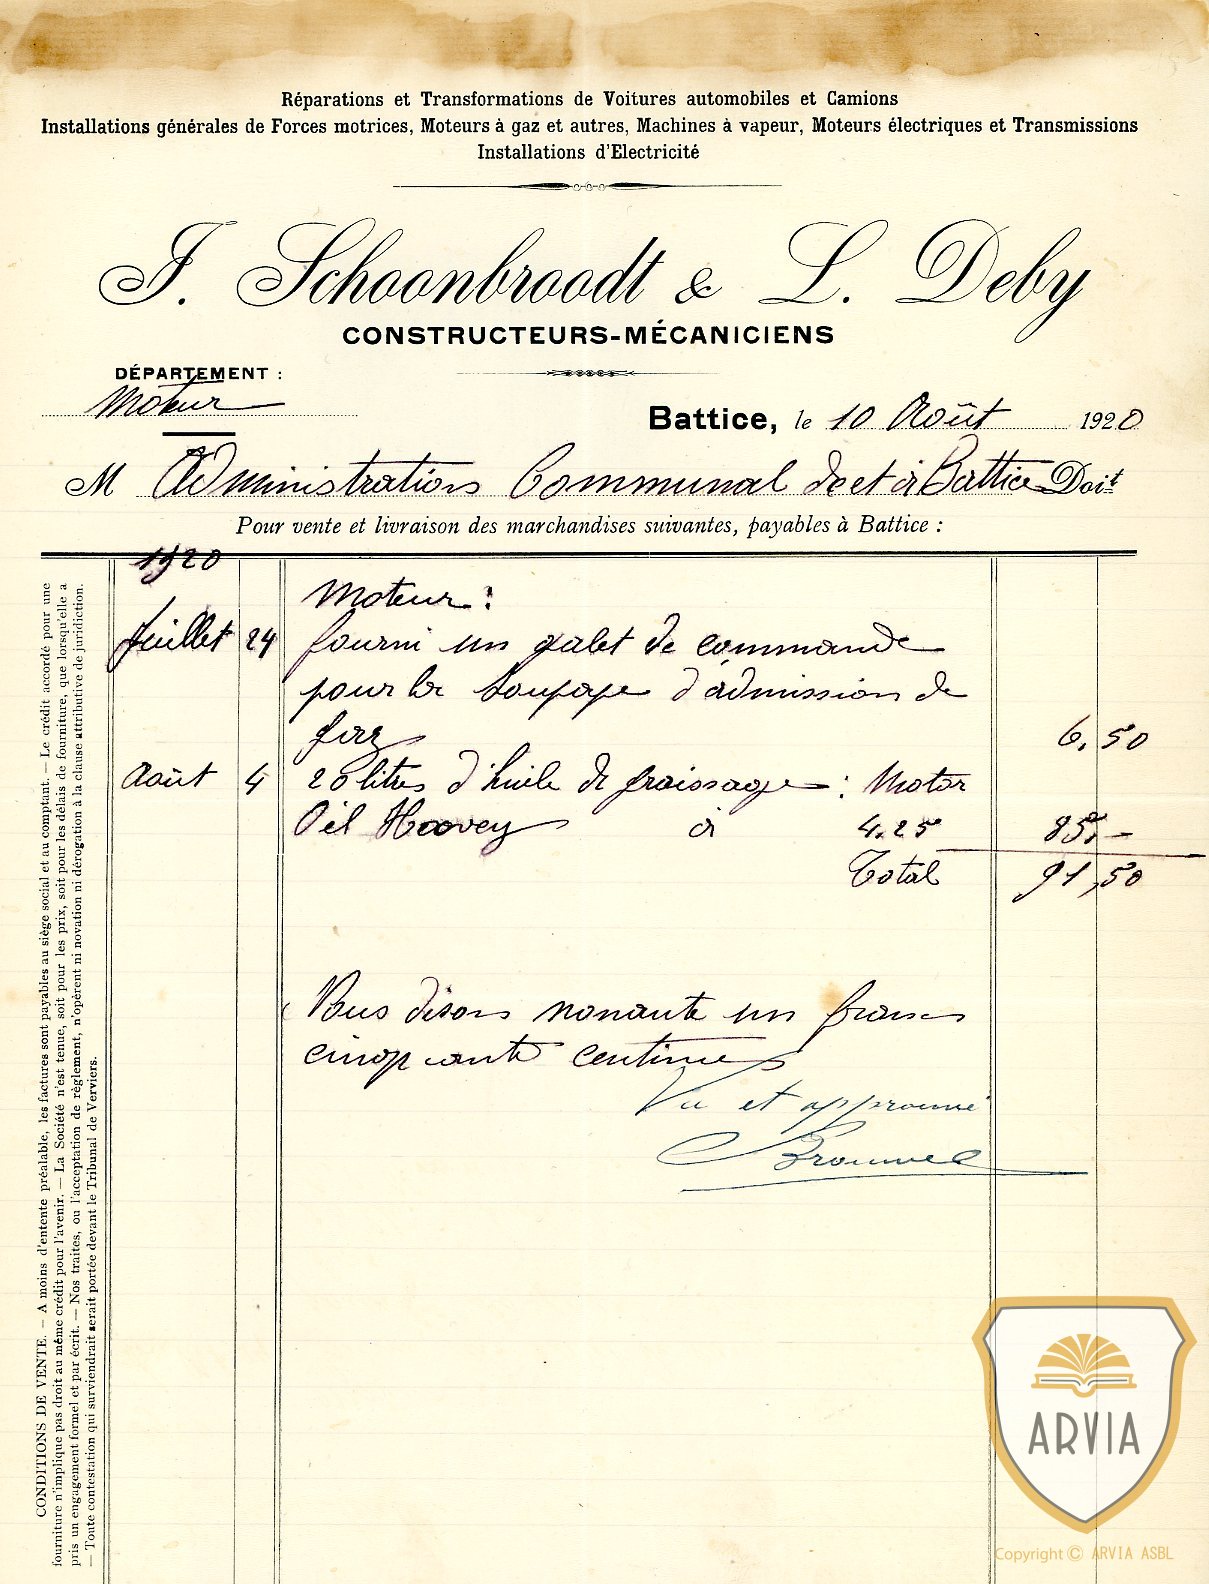 Réparations et Transformations de Voitures automobiles et Camions
Installations générales de Forces motrices, Moteurs à gaz et autres, Machines à vapeur, Moteurs électriques et Transmissions
Installations d'Electricité
J. Schoonbroodt & L. Deby
CONSTRUCTEURS-MÉCANICIENS
DÉPARTEMENT :
Moteur
Battice, le 10 Août 1920
M Administration Communal de et à Battice Doit
Pour vente et livraison des marchandises suivantes, payables à Battice :
1920
Moteur :
Juillet 24 fourni un galet de commande
pour la soupape d'admission de
gaz 6,50
Août 4 20 litres d'huile de graissage : Motor
Oil à 4.25 85,-
Total 91,50
Nous disons nonante un francs
cinquante centimes
Vu et approuvé
CONDITIONS DE VENTE. — A moins d'entente préalable, les factures sont payables au siège social et au comptant. — Le crédit accordé pour une
fourniture n'implique pas droit au même crédit pour l'avenir. — La Société n'est tenue, soit pour les prix, soit pour les délais de fourniture, que lorsqu'elle a
pris un engagement formel et par écrit. — Nos traites, ou l'acceptation de règlement, n'opèrent ni novation ni dérogation à la clause attributive de juridiction.
— Toute contestation qui surviendrait serait portée devant le Tribunal de Verviers.
ARVIA
Copyright © ARVIA ASBL